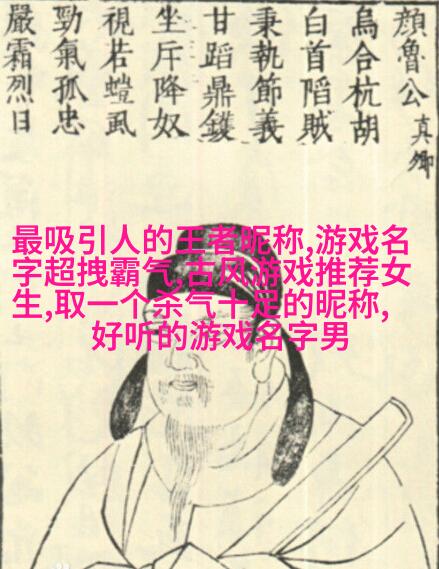 顔魯公真卿
烏合杭胡
白首陷賊
秉執節義
甘蹈鼎鑊
坐斥降奴
視若螘虱
勁氣孤忠
嚴霜烈日
最吸引人的王者昵称,游戏名
字超拽霸气,古风游戏推荐女
生,取一个杀气十足的昵称,
好听的游戏名字男